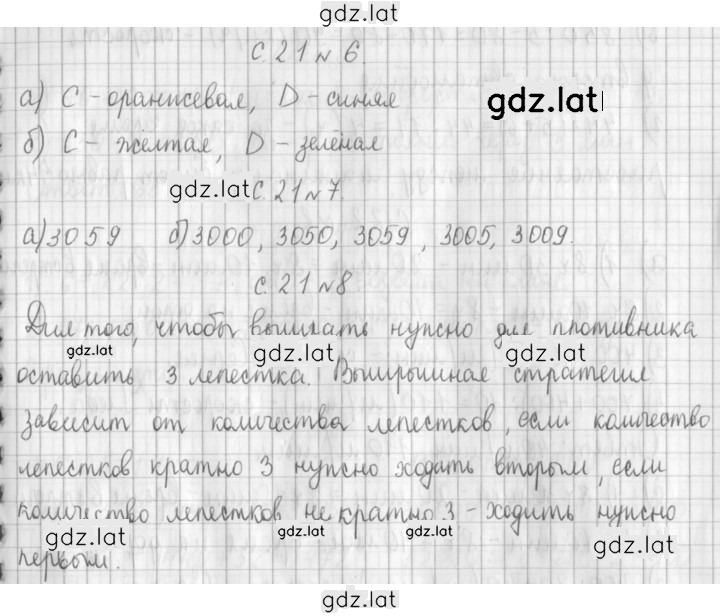 gdz.lat
с. 21 № 6.
а) С - оранжевая, D - синяя
gdz.lat
б) С - жёлтая, D - зелёная
gdz.lat
с. 21 № 7
а) 3059 б) 3000, 3050, 3059, 3005, 3009.
с. 21 № 8
Для того, чтобы выиграть нужно для противника
gdz.lat gdz.lat gdz.lat
оставить 3 лепестка. Выигрышная стратегия
зависит от количества лепестков, если количество
лепестков кратно 3 нужно ходить вторым, если
количество лепестков не кратно 3 - ходить нужно
gdz.lat gdz.lat gdz.lat gdz.lat
первым.
gdz.lat